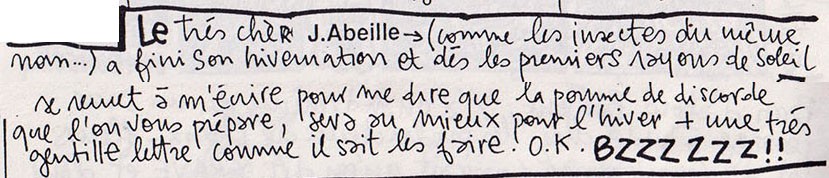 Le très chèR J.Abeille→(comme les insectes du même
nom...) a fini son hivernation et dès les premiers rayons de Soleil
se remet à m'écrire pour me dire que la pomme de discorde
que l'on vous prépare, sera au mieux pour l'hiver + une très
gentille lettre comme il sait les faire. O.K. BZZZ ZZZ!!